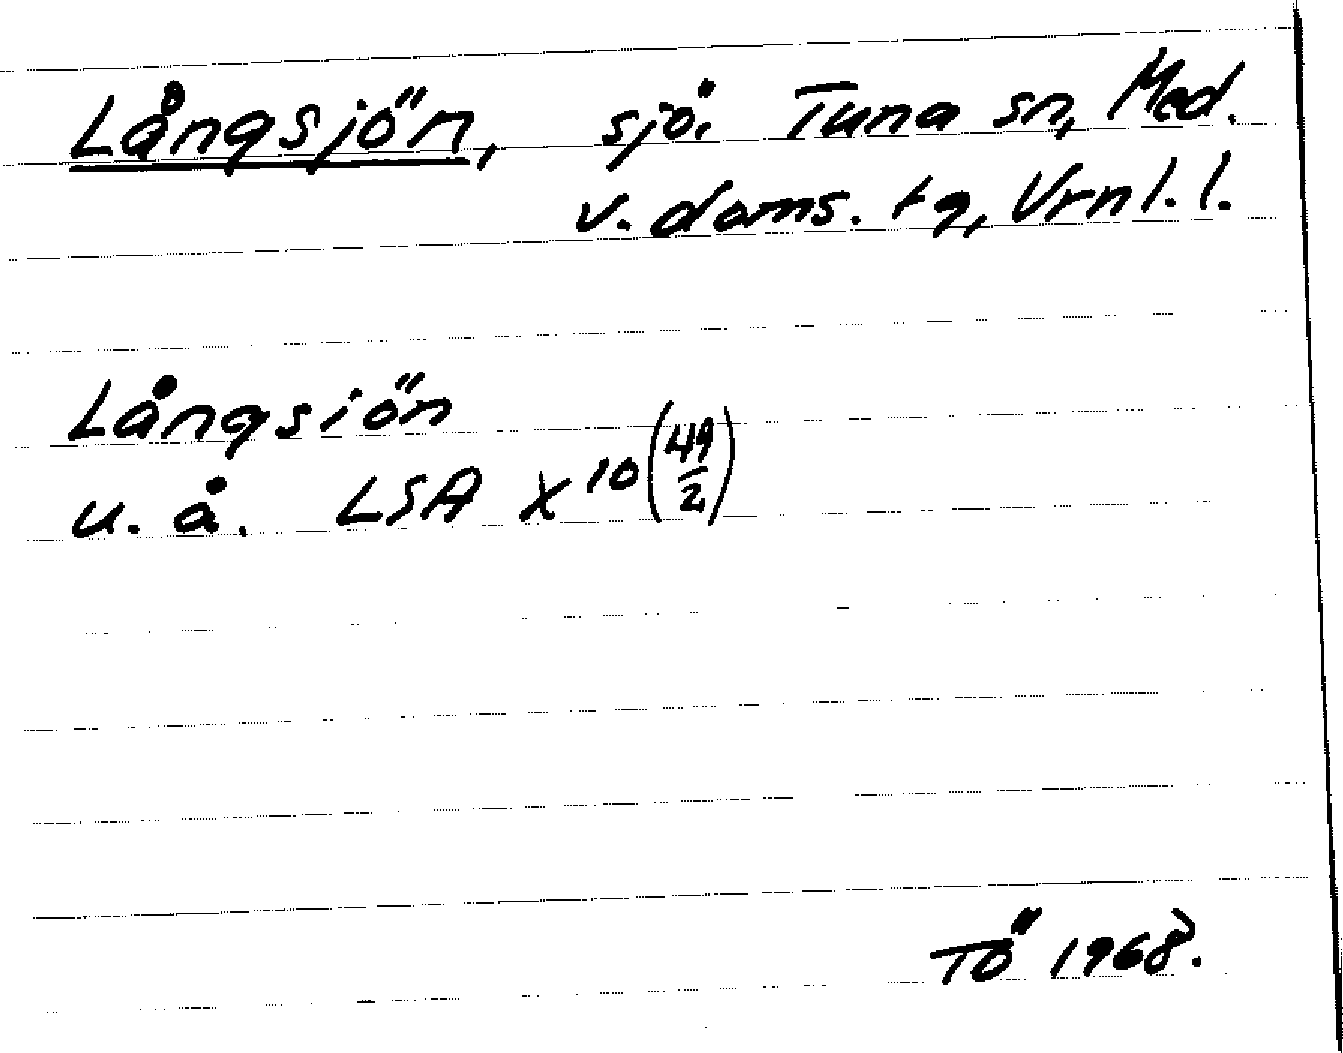 Långsjön, sjö i Tuna sn, Med.
v. doms. tg, Vrnl. l.
Långsiön
u. å. LSA X 10 (49/2)
TÖ 1968.